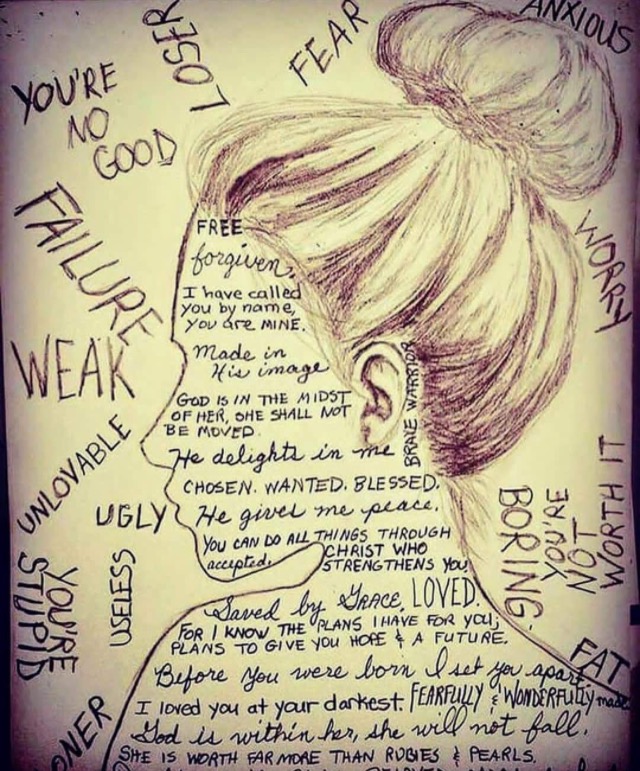 LOSER
FEAR
ANXIOUS
YOU'RE
NO
GOOD
FAILURE
WORRY
WEAK
UNLOVABLE
UGLY
USELESS
YOU'RE
STUPID
BORING
YOU'RE
NOT
WORTH IT
FAT
FREE
forgiven.
I have called
you by name,
you are MINE.
Made in
His image
GOD IS IN THE MIDST
OF HER, SHE SHALL NOT
BE MOVED.
BRAVE WARRIOR
He delights in me
CHOSEN. WANTED. BLESSED.
He gives me peace.
YOU CAN DO ALL THINGS THROUGH
CHRIST WHO
STRENGTHENS YOU.
accepted.
Saved by GRACE. LOVED.
FOR I KNOW THE PLANS I HAVE FOR YOU;
PLANS TO GIVE YOU HOPE & A FUTURE.
Before you were born I set you apart.
I loved you at your darkest. FEARFULLY & WONDERFULLY made
God is within her, she will not fall.
SHE IS WORTH FAR MORE THAN RUBIES & PEARLS.